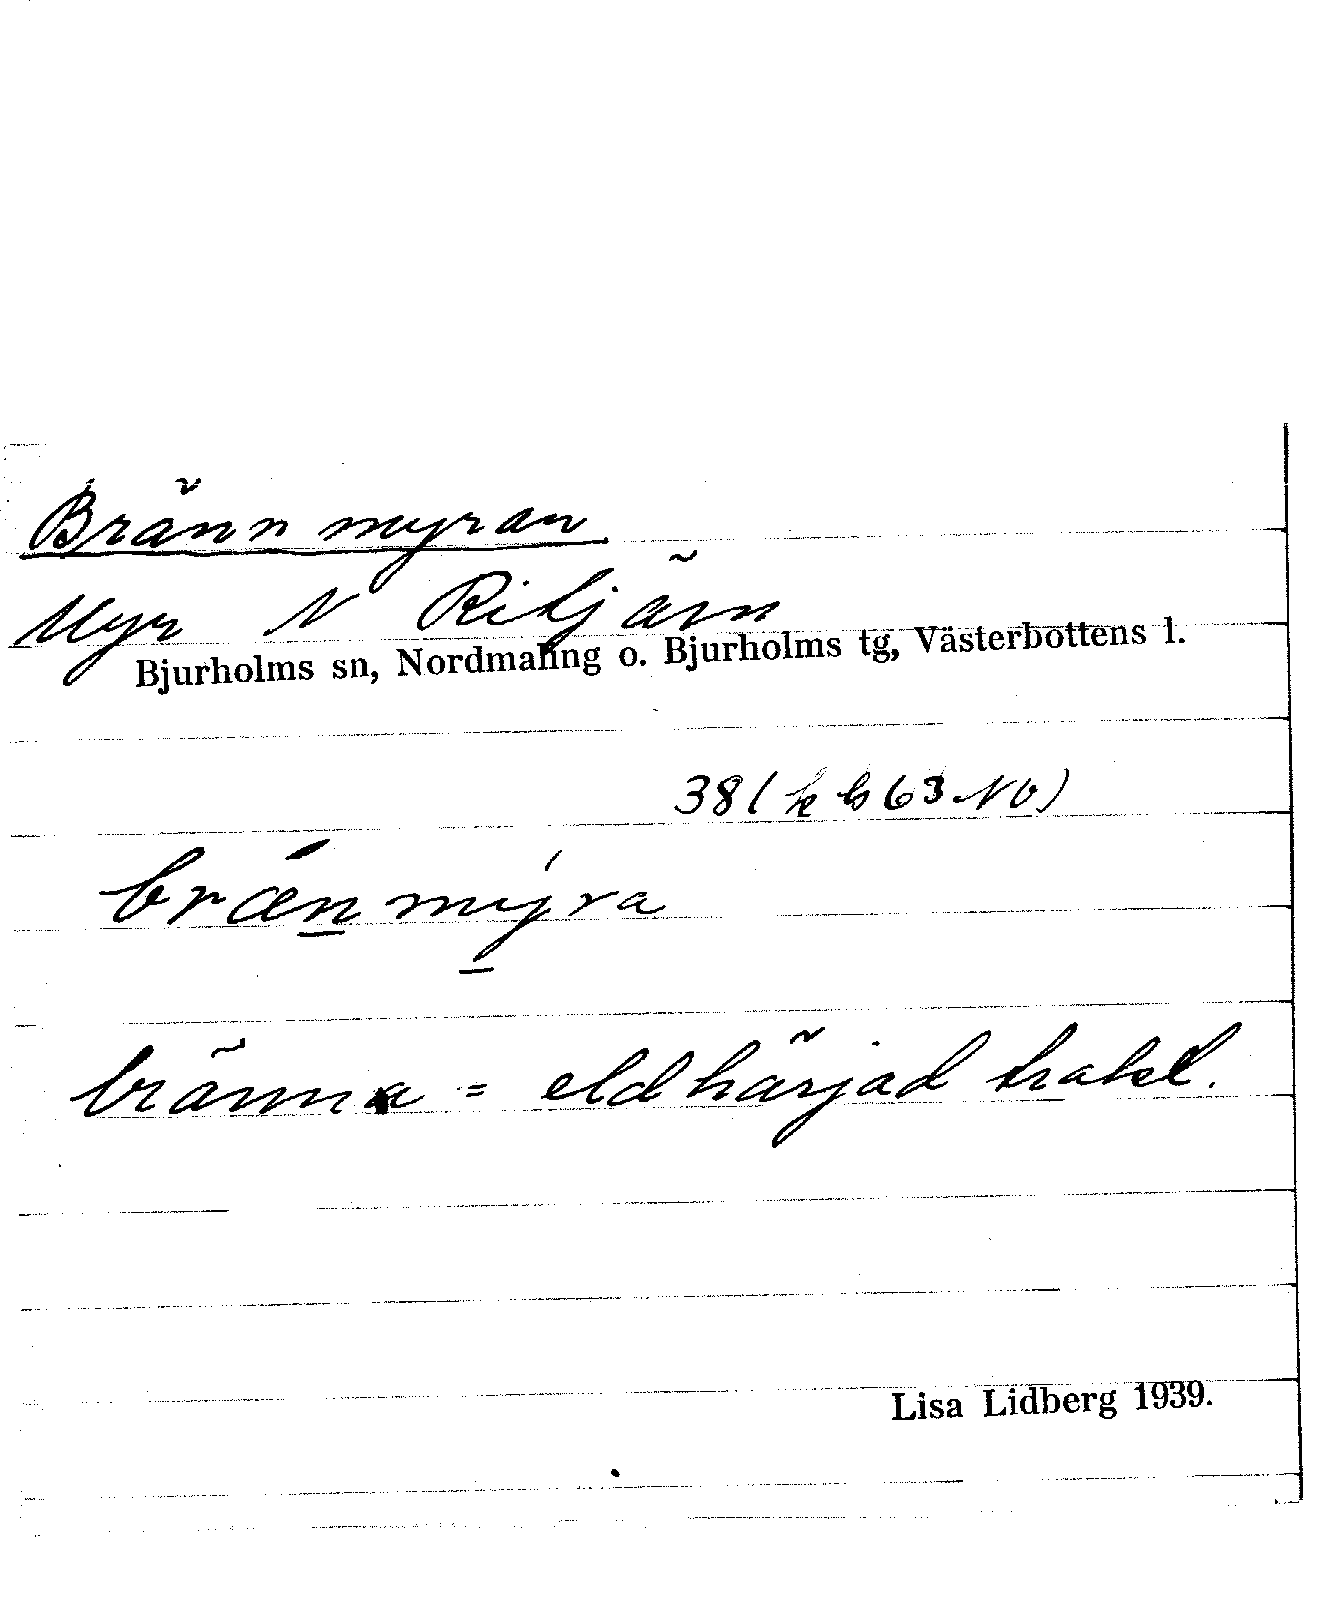 Brännmyran
Myr N Ritjärn
Bjurholms sn, Nordmaling o. Bjurholms tg, Västerbottens l.
38 ( k b 63 NV)
bræ´n̲mý̲ra
bränna = eldhärjad trakt.
Lisa Lidberg 1939.